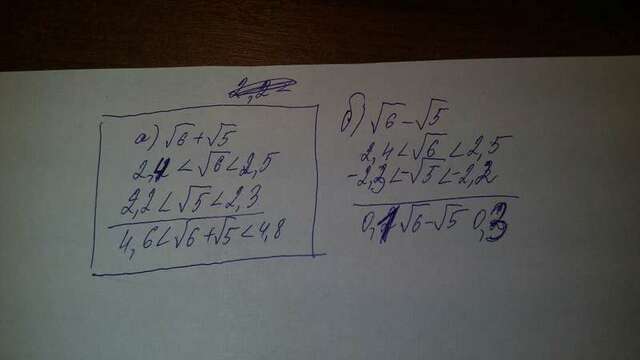 а) √6 + √5
2,4 < √6 < 2,5
2,2 < √5 < 2,3
4,6 < √6 + √5 < 4,8
б) √6 - √5
2,4 < √6 < 2,5
-2,3 < -√5 < -2,2
0,1 √6 - √5 0,3